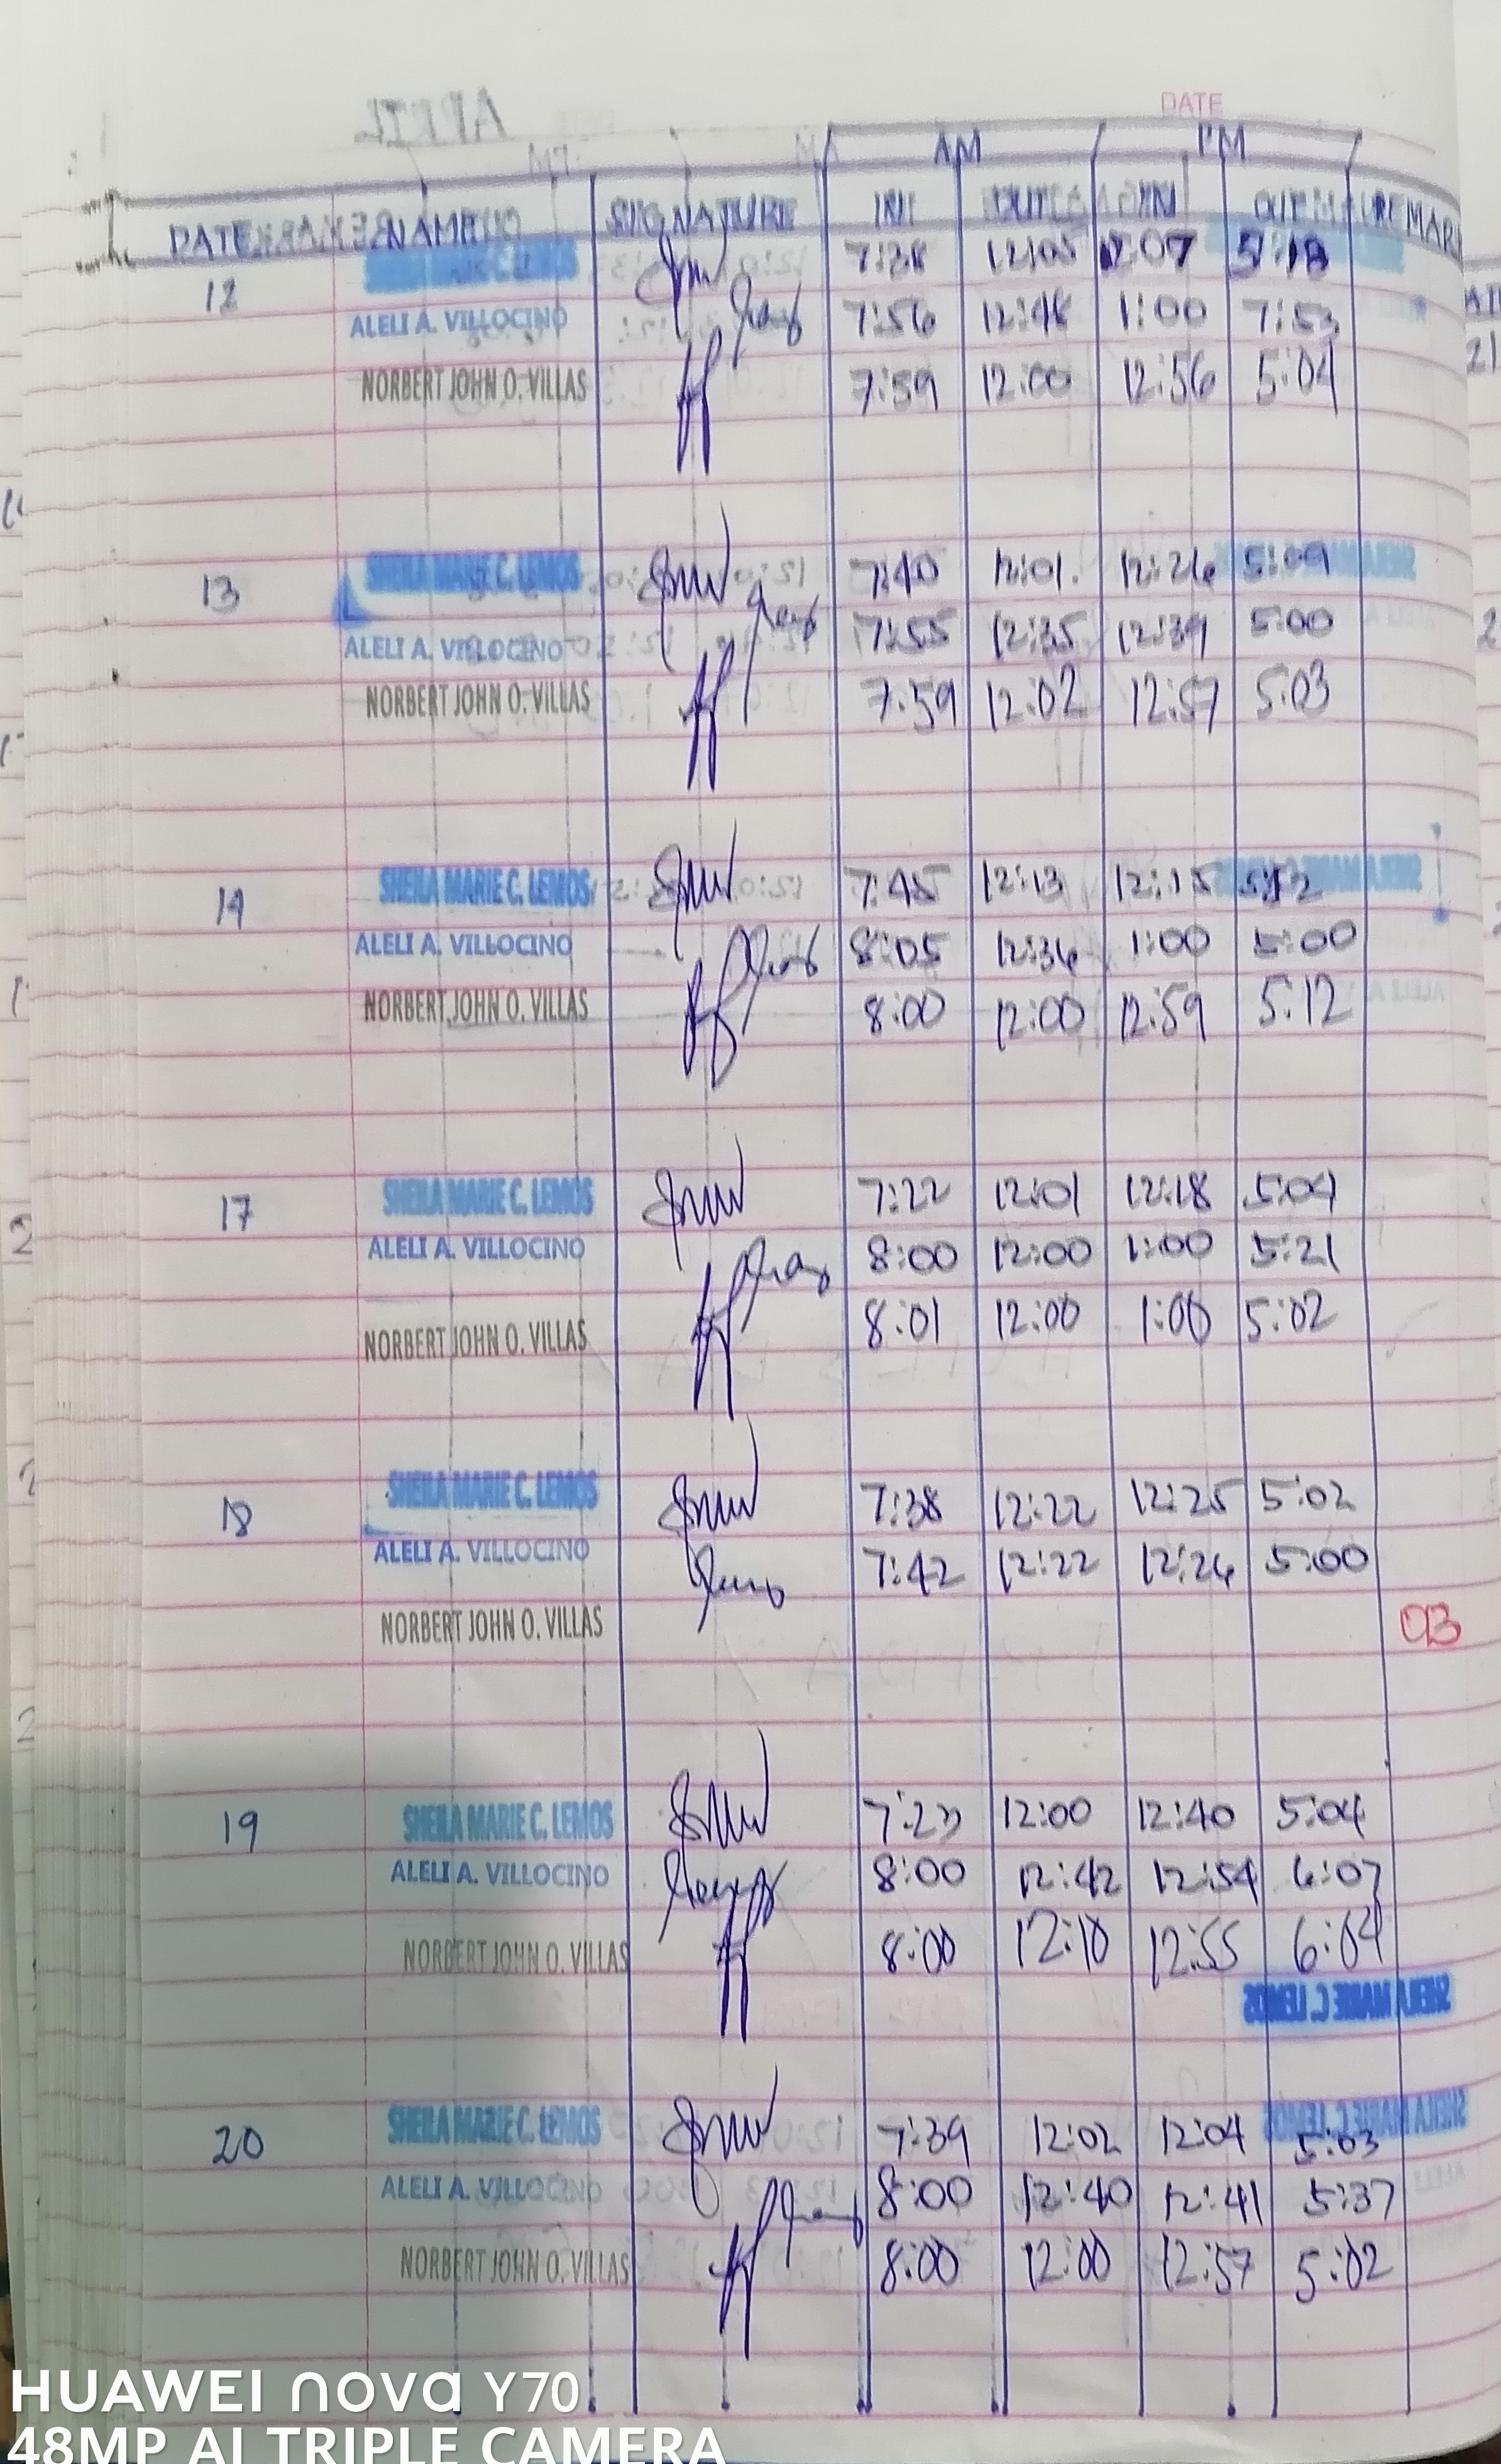 DATE
AM PM
DATE NAME SIGNATURE IN OUT IN OUT REMAR
12 SHEILA MARIE C. LEMOS 7:28 12:05 12:07 5:18
ALELI A. VILLOCINO 7:56 12:48 1:00 7:53
NORBERT JOHN O. VILLAS 7:59 12:00 12:56 5:04
13 SHEILA MARIE C. LEMOS 7:40 12:01 12:26 5:09
ALELI A. VILLOCINO 7:55 12:35 12:39 5:00
NORBERT JOHN O. VILLAS 7:59 12:02 12:57 5:03
14 SHEILA MARIE C. LEMOS 7:45 12:13 12:15 5:12
ALELI A. VILLOCINO 8:05 12:36 1:00 5:00
NORBERT JOHN O. VILLAS 8:00 12:00 12:59 5:12
17 SHEILA MARIE C. LEMOS 7:22 12:01 12:18 5:04
ALELI A. VILLOCINO 8:00 12:00 1:00 5:21
NORBERT JOHN O. VILLAS 8:01 12:00 1:00 5:02
18 SHEILA MARIE C. LEMOS 7:38 12:22 12:25 5:02
ALELI A. VILLOCINO 7:42 12:22 12:26 5:00
NORBERT JOHN O. VILLAS OB
19 SHEILA MARIE C. LEMOS 7:23 12:00 12:40 5:04
ALELI A. VILLOCINO 8:00 12:42 12:54 6:07
NORBERT JOHN O. VILLAS 8:00 12:10 12:55 6:04
20 SHEILA MARIE C. LEMOS 7:39 12:02 12:04 5:03
ALELI A. VILLOCINO 8:00 12:40 12:41 5:37
NORBERT JOHN O. VILLAS 8:00 12:00 12:57 5:02
HUAWEI nova Y70
48MP AI TRIPLE CAMERA